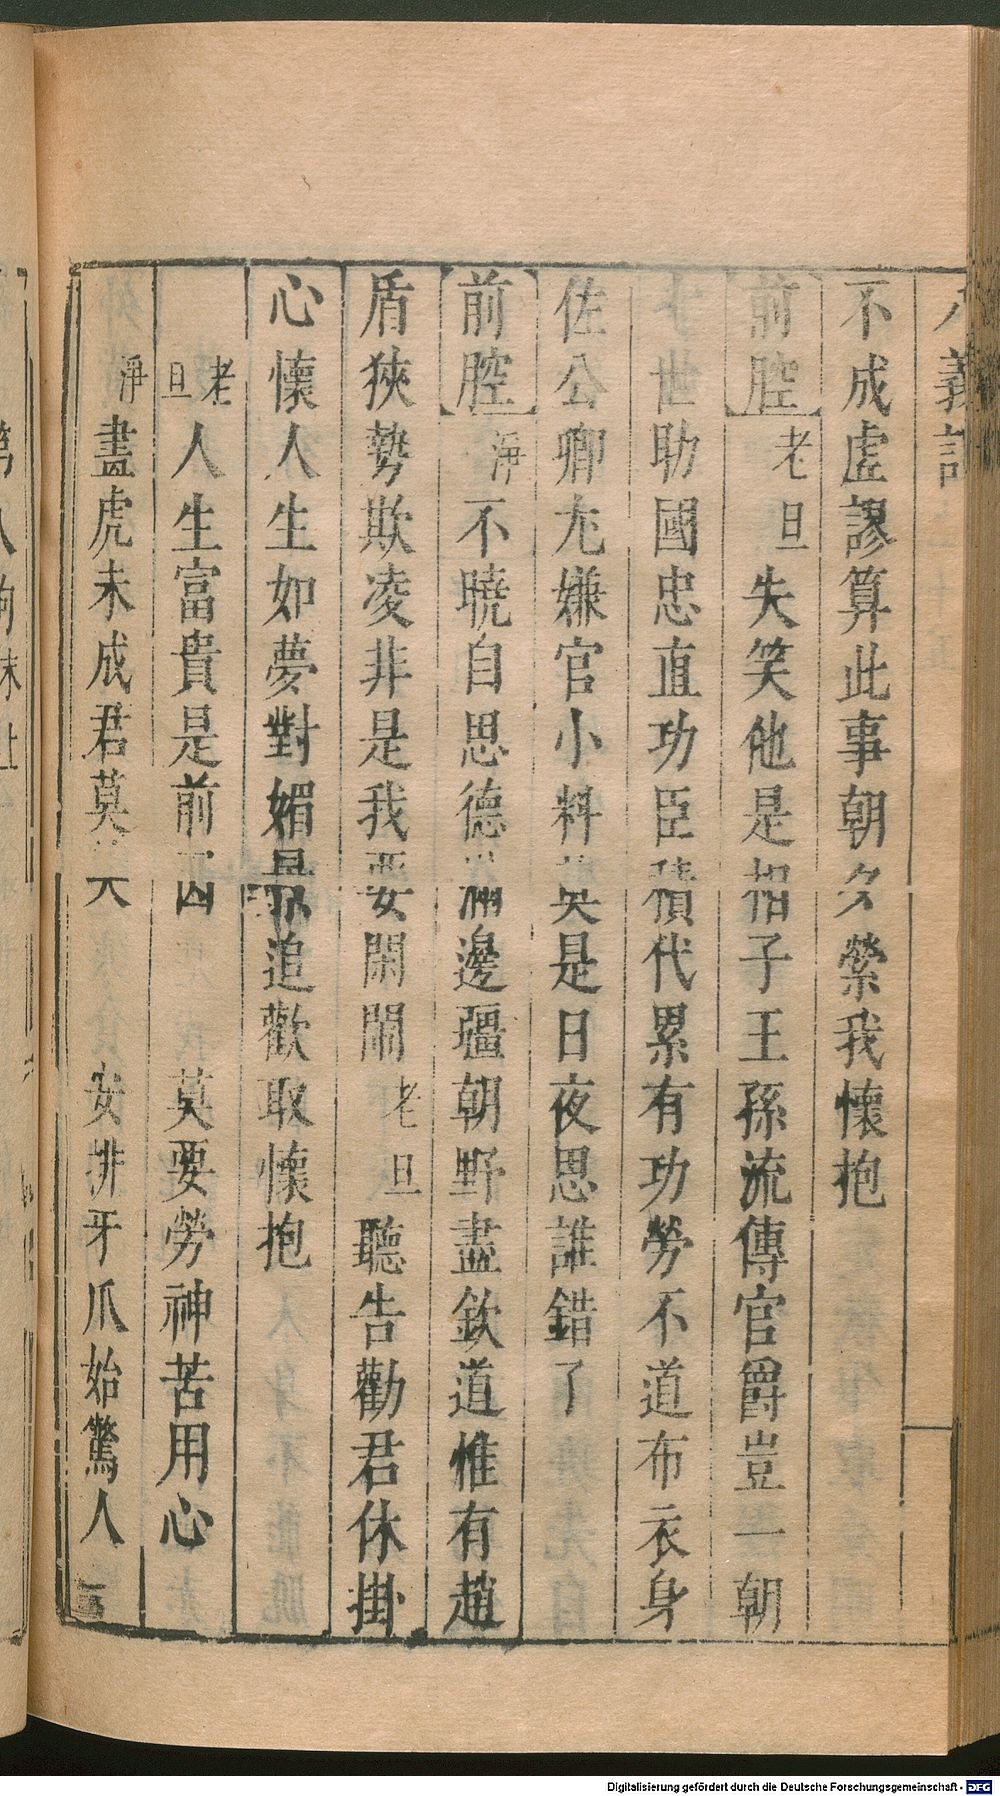 八義記
不成虛謬算此事朝夕縈我懷抱
前腔 老旦 失笑他是相子王孫流傳官爵豈一朝
世助國忠直功臣積代累有功勞不道布衣身
佐公卿尢嫌官小料 是日夜思誰錯了
前腔 淨 不曉自思德 邊疆朝野盡欽道惟有趙
盾狹勢欺凌非是我要閑鬧 老旦 聽告勸君休掛
心懷人生如夢對媚景追歡取懷抱
老旦 人生富貴是前 莫要勞神苦用心
淨 畫虎未成君莫 安排牙爪始驚人
Digitalisierung gefördert durch die Deutsche Forschungsgemeinschaft - DFG